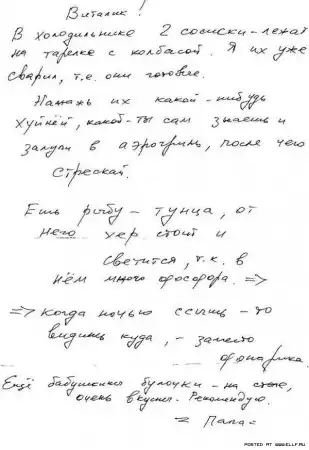 Виталик!
В холодильнике 2 сосиски - лежат
на тарелке с колбасой. Я их уже
сварил, т.е. они готовые.
Намажь их какой-нибудь
хуйнёй, какой-ты сам знаешь и
запули в аэрогриль, после чего
стрескай.
Ешь рыбу - тунца, от
него хер стоит и
светится, т.к. в
нём много фосфора. =>
=> когда ночью ссышь - то
видишь куда, - заместо
фонарика.
Ещё бабушкины булочки - на столе,
очень вкусно. Рекомендую.
= Папа =
POSTED AT